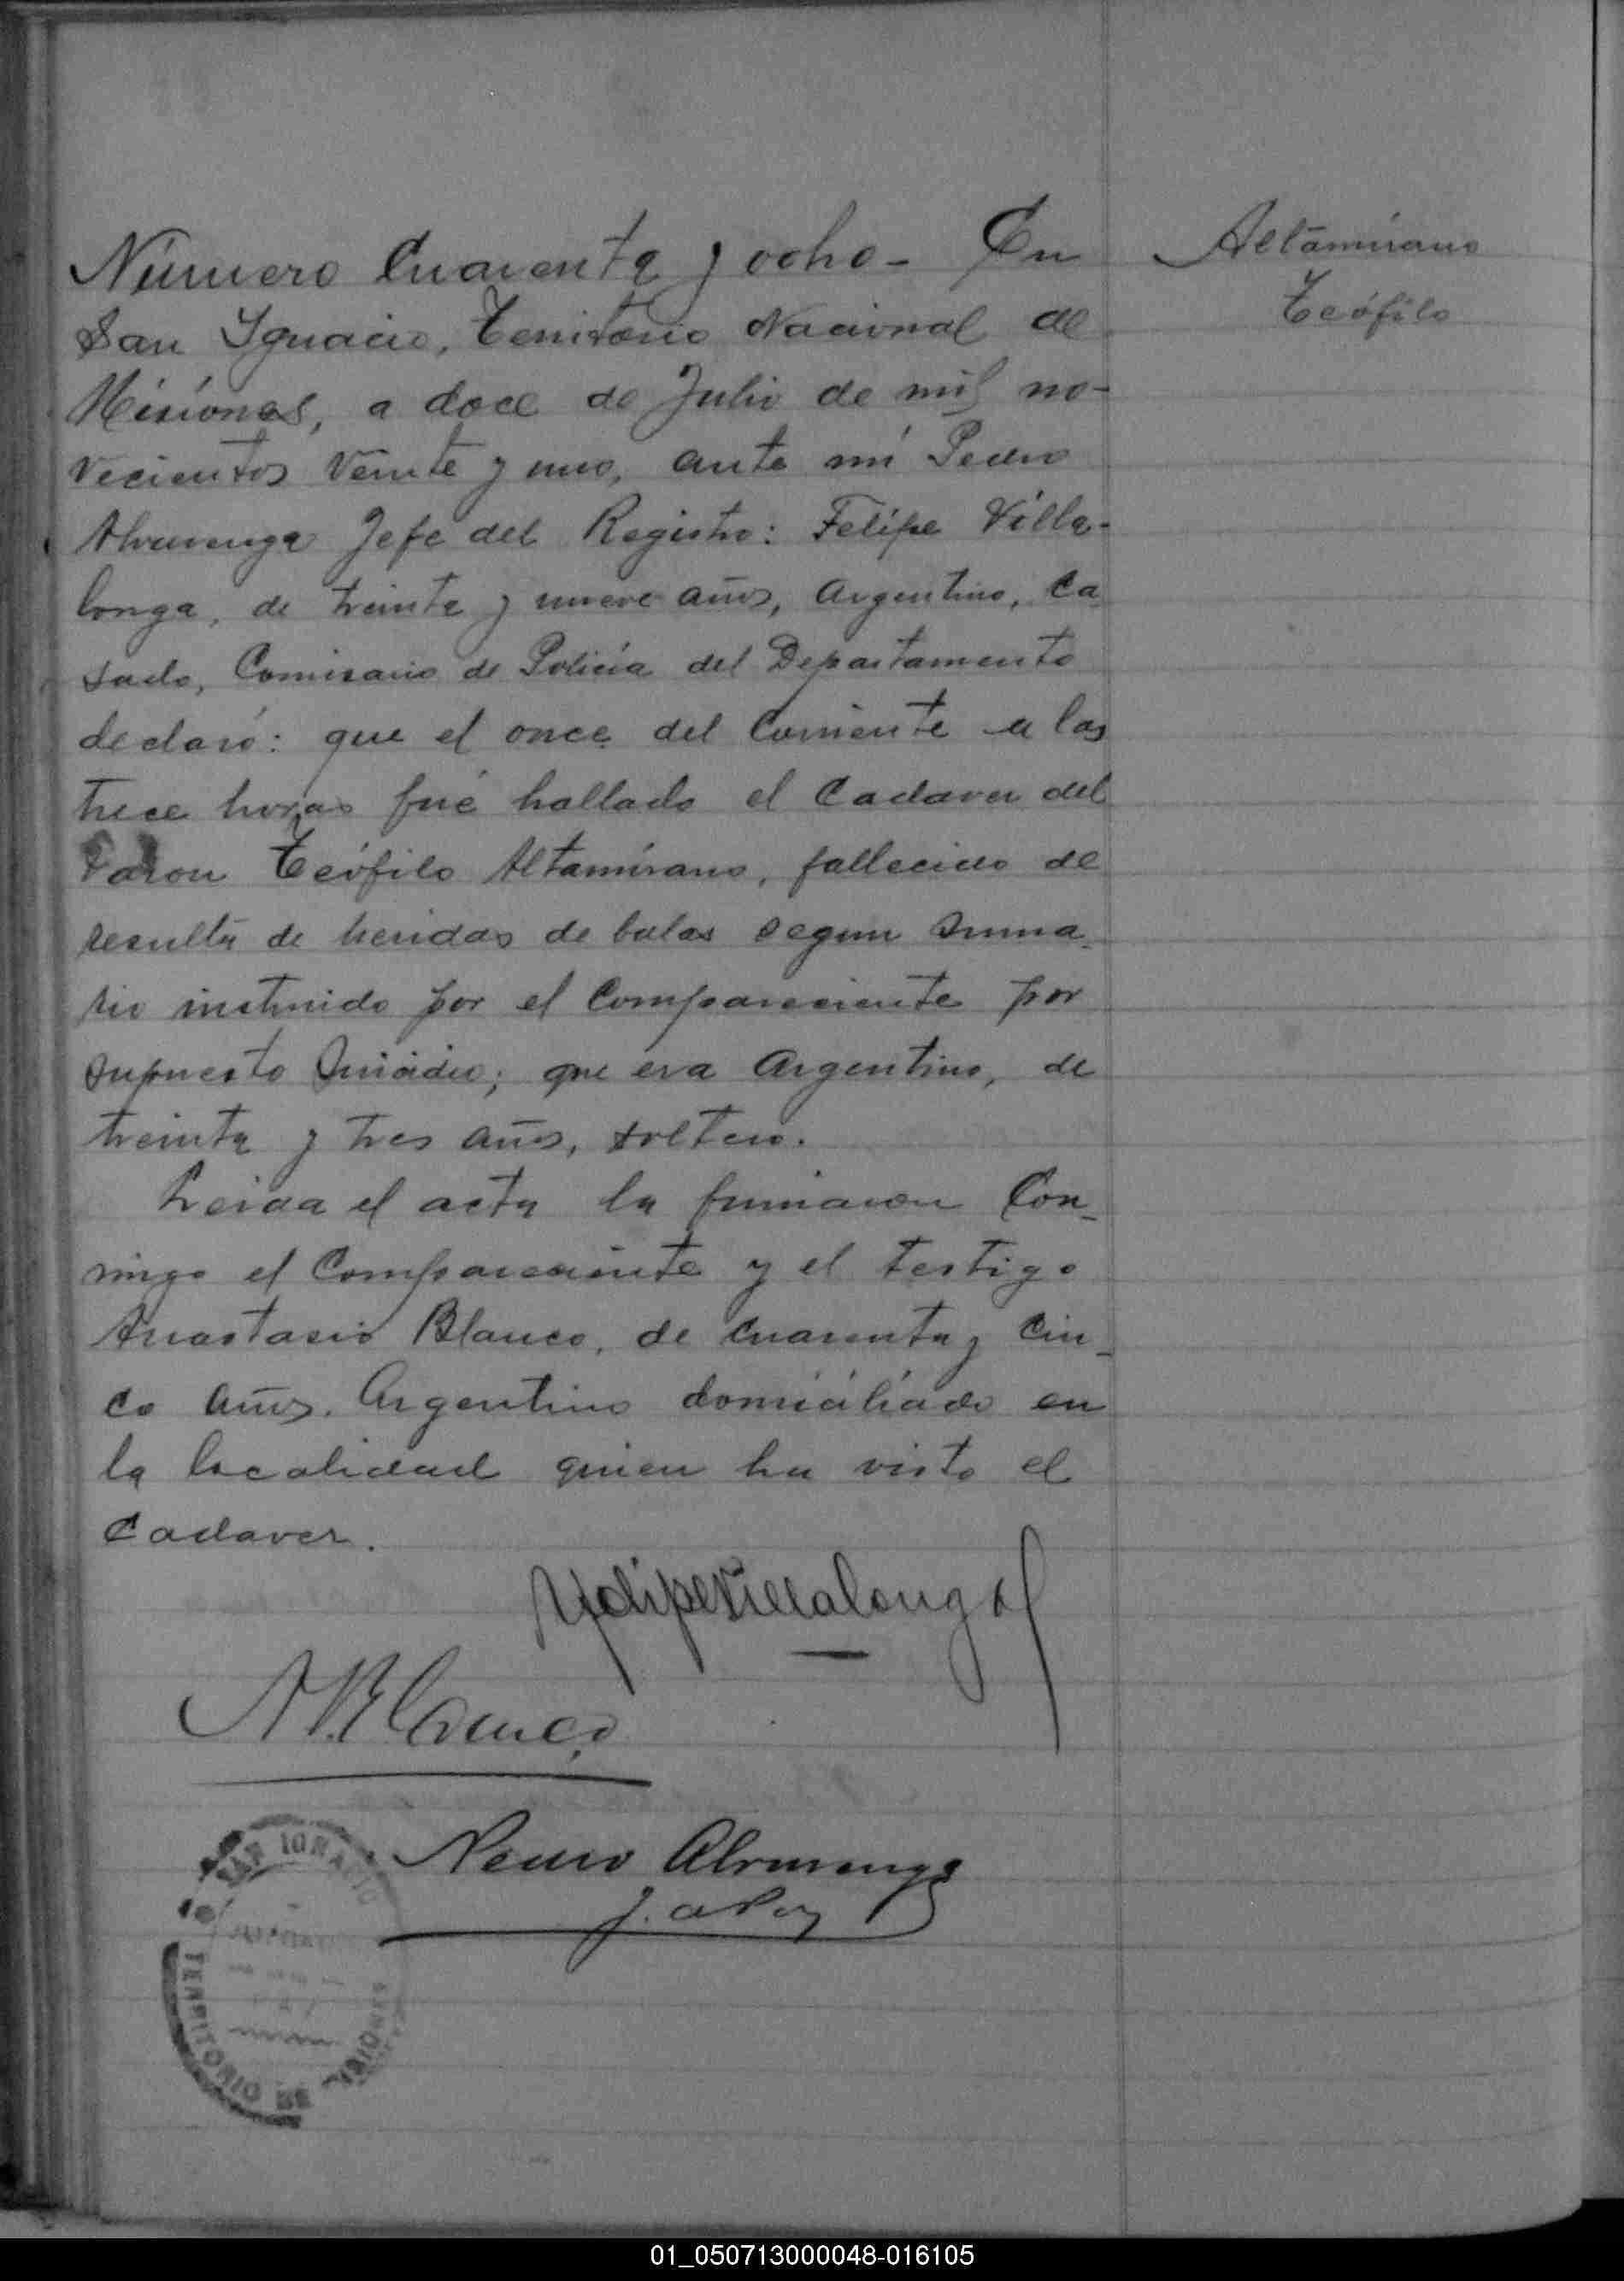 Número Cuarenta y ocho - En
San Ignacio, Territorio Nacional de
Misiones, a doce de Julio de mil no-
vecientos veinte y uno, ante mí Pedro
Alvarenga Jefe del Registro: Felipe Villa-
longa, de treinta y nueve años, Argentino, Ca
sado, Comisario de Policía del Departamento
declaró: que el once del Corriente a las
trece horas fué hallado el Cadaver del
Varon Teófilo Altamirano, fallecido de
resulta de heridas de balas segun Suma-
rio instruido por el Compareciente por
supuesto Suicidio; que era Argentino, de
treinta y tres años, soltero.
Leida el acta la firmaron Con-
migo el Compareciente y el testigo
Anastasio Blanco, de Cuarenta y Cin-
co años. Argentino domiciliado en
la localidad quien ha visto el
Cadaver.
Altamirano
Teófilo
Felipe Villalonga
A. Blanco
Pedro Alvarenga
SAN IGNACIO
TERRITORIO DE
01_050713000048-016105